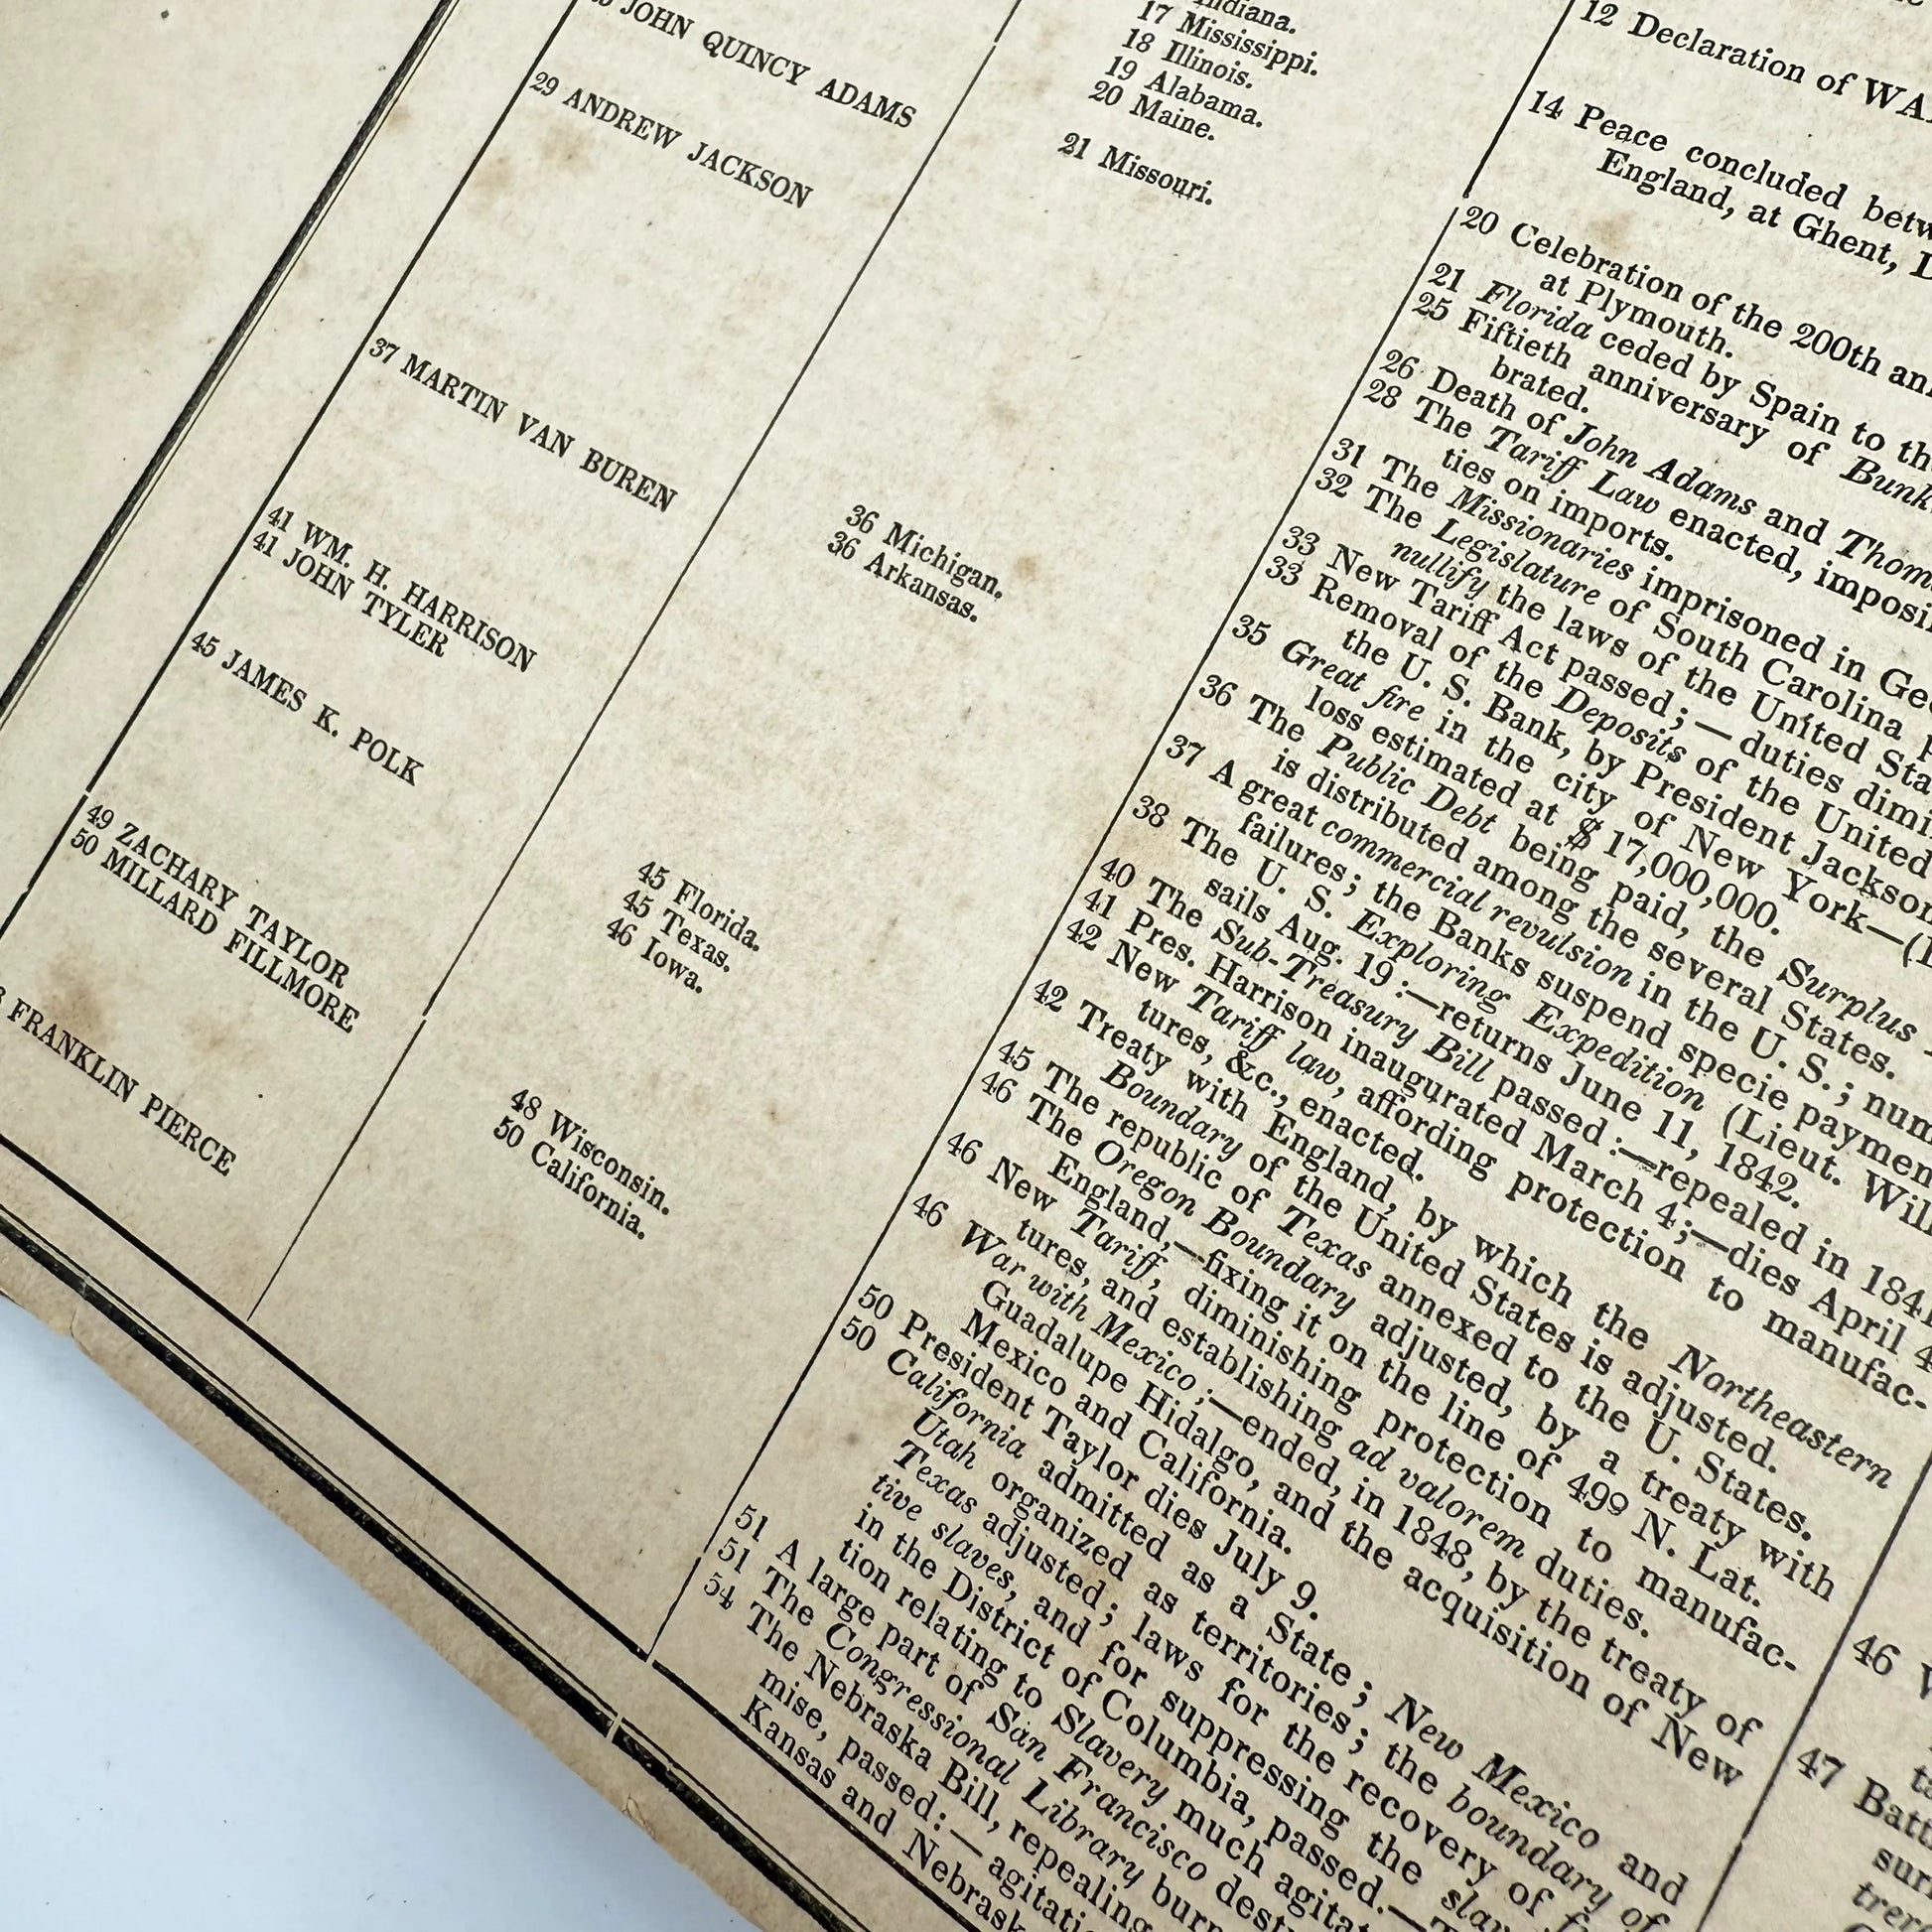 JOHN QUINCY ADAMS
29 ANDREW JACKSON
37 MARTIN VAN BUREN
41 WM. H. HARRISON
41 JOHN TYLER
45 JAMES K. POLK
49 ZACHARY TAYLOR
50 MILLARD FILLMORE
FRANKLIN PIERCE
Indiana.
17 Mississippi.
18 Illinois.
19 Alabama.
20 Maine.
21 Missouri.
36 Michigan.
36 Arkansas.
45 Florida.
45 Texas.
46 Iowa.
48 Wisconsin.
50 California.
12 Declaration of
14 Peace concluded
England, at Ghent,
20 Celebration of the 200th
at Plymouth.
21 Florida ceded by Spain to
25 Fiftieth anniversary of
brated.
26 Death of John Adams and
28 The Tariff Law enacted,
ties on imports.
31 The Missionaries imprisoned in
32 The Legislature of South Carolina
nullify the laws of the United
33 New Tariff Act passed;—duties
33 Removal of the Deposits of the United
the U. S. Bank, by President Jackson
35 Great fire in the city of New York—
loss estimated at $17,000,000.
36 The Public Debt being paid, the Surplus
is distributed among the several States.
37 A great commercial revulsion in the U. S.;
failures; the Banks suspend specie
38 The U. S. Exploring Expedition (Lieut.
sails Aug. 19:—returns June 11, 1842.
40 The Sub-Treasury Bill passed:—repealed in
41 Pres. Harrison inaugurated March 4;—dies April
42 New Tariff law, affording protection to manufac-
tures, &c., enacted.
42 Treaty with England, by which the Northeastern
Boundary of the United States is adjusted.
45 The republic of Texas annexed to the U. States.
46 The Oregon Boundary adjusted, by a treaty with
England,—fixing it on the line of 49º N. Lat.
46 New Tariff, diminishing protection to manufac-
tures, and establishing ad valorem duties.
46 War with Mexico;—ended, in 1848, by the treaty of
Guadalupe Hidalgo, and the acquisition of New
Mexico and California.
50 President Taylor dies July 9.
50 California admitted as a State; New Mexico and
Utah organized as territories; the boundary of
Texas adjusted; laws for the recovery of
tive slaves, and for suppressing the
in the District of Columbia, passed.—
tion relating to Slavery much
51 A large part of San Francisco
51 The Congressional Library
54 The Nebraska Bill, repealing
mise, passed:—
Kansas and
46
47